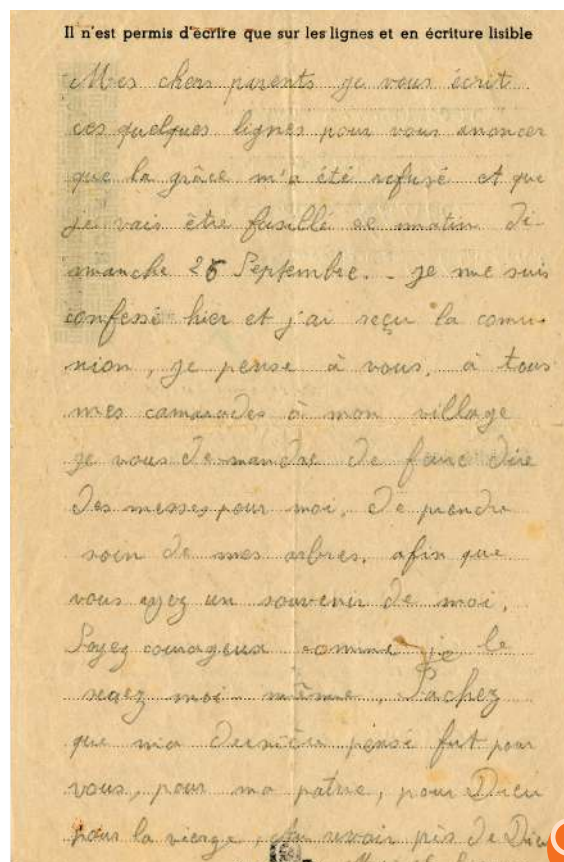 Il n'est permis d'écrire que sur les lignes et en écriture lisible
Mes chers parents je vous écrit
ces quelques lignes pour vous anoncer
que la grâce m'a été refusé et que
je vais être fusillé ce matin di-
manche 26 Septembre. - Je me suis
confessé hier et j'ai reçu la comu-
nion, je pense à vous, à tous
mes camarades à mon village
je vous demandre de faire dire
des messes pour moi, de prendre
soin de mes arbres, afin que
vous ayez un souvenir de moi.
Soyez courageux comme je le
moi même, Sachez
que ma dernière pensé fut pour
vous, pour ma patrie, pour Dieu
pour la vierge, Au revoir près de Dieu